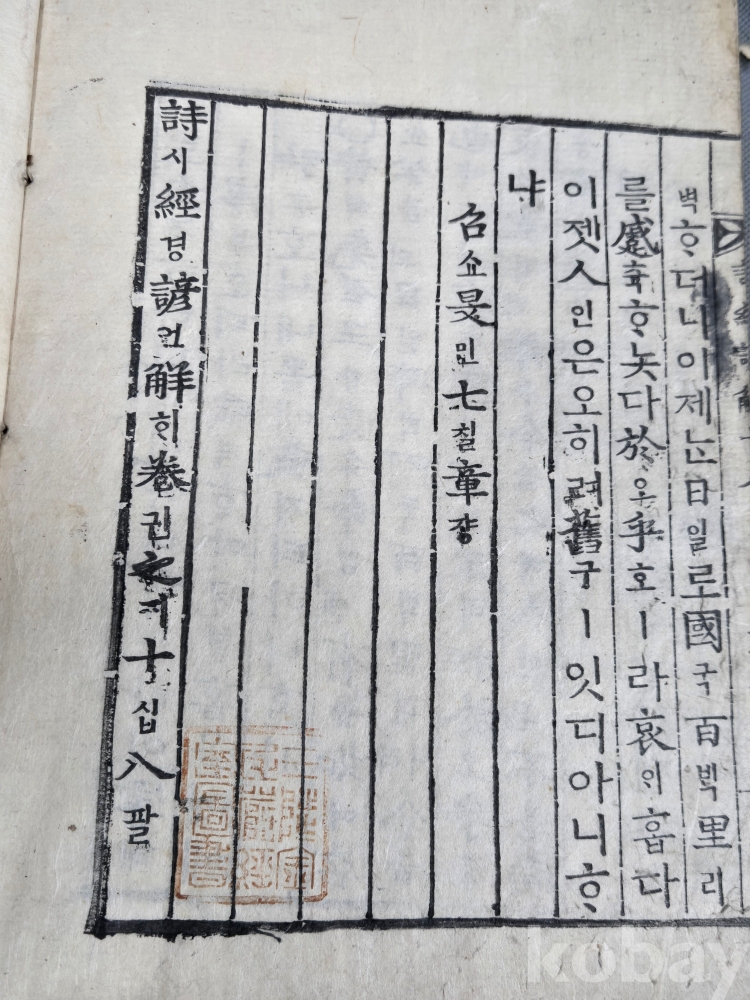 벽ᄒᆞ더니이제ᄂᆞᆫ日일로國국百ᄇᆡᆨ里리
를蹙츅ᄒᆞ놋다於오乎호ㅣ라哀ᄋᆡ홉다
이젯人인은오히려舊구ㅣ잇디아니ᄒᆞ
냐
召쇼旻민七칠章쟝
詩시經경諺언解ᄒᆡ卷권之지十십八팔
kobay